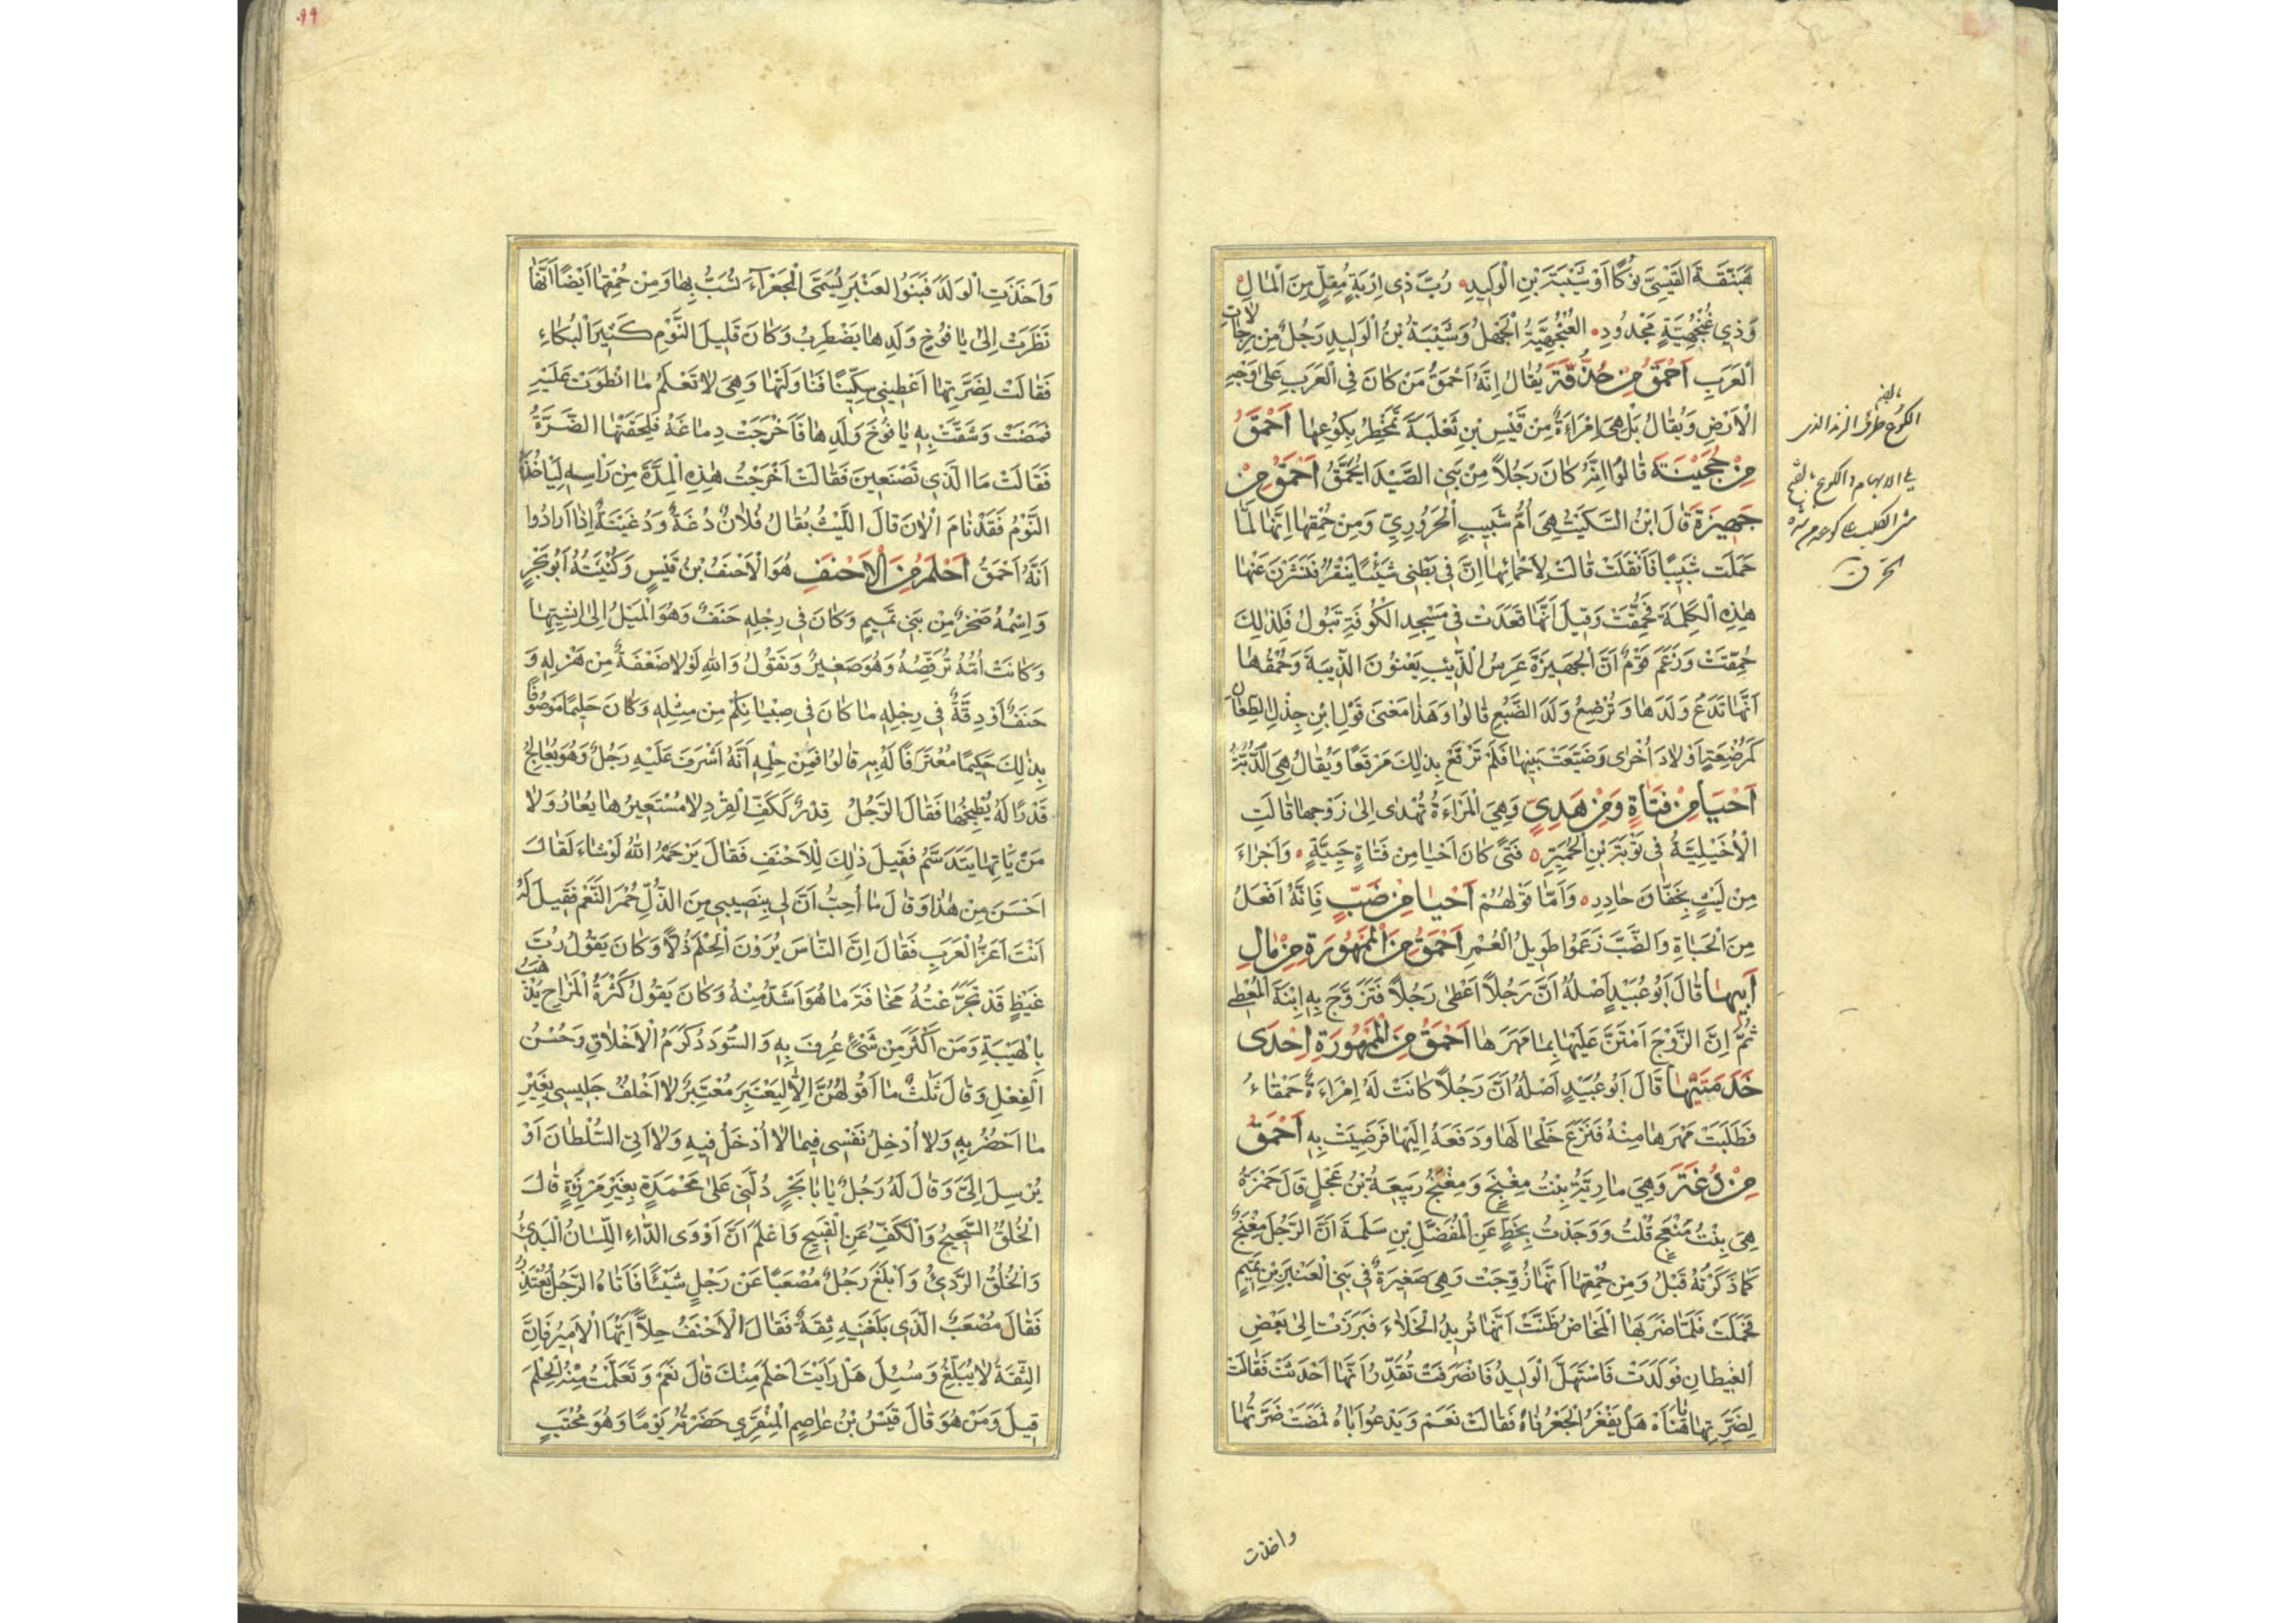 هَبَنَّقَةَ القَيْسِيَّ نُوكًا اَوْ شَيْبَةَ بْنِ الْوَلِيدِ رُبَّ ذِي اِرْبَةٍ مُقِلٍّ مِنَ الْمَالِ
وَذِي عُنْجُهِيَّةٍ مَجْدُودِ العُنْجُهِيَّةُ الْجَهْلُ وَشَيْبَةُ بْنُ الْوَلِيدِ رَجُلٌ مِنْ رِجَالَاتِ
الْعَرَبِ اَحْمَقُ مِنْ حُذُنَّةَ يُقَالُ اِنَّهُ اَحْمَقُ مَنْ كَانَ فِي الْعَرَبِ عَلَى وَجْهِ
الْاَرْضِ وَيُقَالُ بَلْ هِيَ اِمْرَاَةٌ مِنْ قَيْسِ بْنِ ثَعْلَبَةَ تَمْتَخِطُ بِكُوعِهَا اَحْمَقُ
مِنْ حُجَيْنَةَ قَالُوا اِنَّهُ كَانَ رَجُلاً مِنْ بَنِي الصَّيْدَا يُحَمَّقُ اَحْمَقُ مِنْ
جَهِيزَةَ قَالَ ابْنُ السِّكِّيتِ هِيَ اُمُّ شَبِيبٍ الْحَرُورِيِّ وَمِنْ حُمْقِهَا اِنَّهَا لَمَّا
حَمَلَت شَبِيبًا فَاَثْقَلَتْ قَالَتْ لِاَحْمَائِهَا اِنَّ فِي بَطْنِي شَيْئًا يَنْقُرُ فَنَشَرْنَ عَنْهَا
هٰذِهِ الْكَلِمَةَ فَحُمِّقَتْ وَقِيلَ اَنَّهَا قَعَدَتْ فِي مَسْجِدِ الْكُوفَةِ تَبُولُ فَلِذٰلِكَ
حُمِّقَتْ وَزَعَمَ قَوْمٌ اَنَّ الْجَهِيزَةَ عِرْسُ الذِّيبِ يَعْنُونَ الذِّيبَةَ وَحُمْقُهَا
اَنَّهَا تَدَعُ وَلَدَهَا وَتُرْضِعُ وَلَدَ الضَّبُعِ قَالُوا وَهٰذَا مَعْنَى قَوْلِ ابْنِ جِذْلِ الطِّعَانِ
كَمُرْضِعَةٍ اَوْلَادَ اُخْرَى وَضَيَّعَتْ بَنِيهَا فَلَمْ تَرْقَعْ بِذٰلِكَ مَرْقَعًا وَيُقَالُ هِيَ الدُّبَّةُ
اَحْيَا مِنْ فَتَاةٍ وَمِنْ هَدِيٍّ وَهِيَ الْمَرْاَةُ تُهْدَى اِلَى زَوْجِهَا قَالَتِ
الْاَخْيَلِيَّةُ فِي تَوْبَةَ بْنِ الْحُمَيِّرِ فَتًى كَانَ اَحْيَا مِن فَتَاةٍ حَيِيَّةٍ وَاَجْرَاءَ
مِنْ لَيْثٍ بِخَفَّانَ خَادِرِ وَاَمَّا قَوْلُهُمْ اَحْيَا مِنْ ضَبٍّ فَاِنَّهُ اَفْعَلُ
مِنَ الْحَيَاةِ وَالضَّبُّ زَعَمُوا طَوِيلُ الْعُمُرِ اَحْمَقُ مِنَ الْمَمْهُورَةِ مِنْ مَالِ
اَبِيهَا قَالَ اَبُو عُبَيْدٍ اَصْلُهُ اَنَّ رَجُلاً اَعْطَى رَجُلاً فَتَزَوَّجَ بِهِ اِبْنَةَ الْمُعْطِي
ثُمَّ اِنَّ الزَّوْجَ امْتَنَّ عَلَيْهَا بِمَا مَهَرَهَا اَحْمَقُ مِنَ الْمَمْهُورَةِ اِحْدَى
خَدَمَتَيْهَا قَالَ اَبُو عُبَيْدٍ اَصْلُهُ اَنَّ رَجُلاً كَانَتْ لَهُ اِمْرَاَةٌ حَمْقَاءُ
فَطَلَبَتْ مَهْرَهَا مِنْهُ فَنَزَعَ خَلْخَالَهَا وَدَفَعَهُ اِلَيْهَا فَرَضِيَتْ بِهِ اَحْمَقُ
مِنْ دُغَةَ وَهِيَ مَارِيَةُ بِنْتُ مِغْنَجٍ وَمِغْنَجُ رَبِيعَةُ بْنُ عَجْلٍ قَالَ حَمْزَةُ
هِيَ بِنْتُ مَنْعَجٍ قُلْتُ وَوَجَدْتُ بِخَطِّ عَنِ الْمُفَضَّلِ بْنِ سَلَمَةَ اَنَّ الرَّجُلَ مِغْنَجٌ
كَمَا ذَكَرْتُهُ قَبْلُ وَمِنْ حُمْقِهَا اَنَّهَا زُوِّجَتْ وَهِيَ صَغِيرَةٌ فِي بَنِي الْعَنْبَرِ بْنِ تَمِيمٍ
فَحَمَلَتْ فَلَمَّا ضَرَبَهَا الْمَخَاضُ ظَنَّتْ اَنَّهَا تُرِيدُ الْخَلَاءَ فَبَرَزَتْ اِلَى بَعْضِ
الْغِيطَانِ فَوَلَدَتْ فَاسْتَهَلَّ الْوَلِيدُ فَانْصَرَفَتْ تُقَدِّرُ اَنَّهَا اَحْدَثَتْ فَقَالَتْ
لِضَرَّتِهَا يَا هَنَاهْ هَلْ يَفْغَرُ الْجَعْرُ فَاهُ فَقَالَتْ نَعَمْ وَيَدْعُوا اَبَاهُ فَمَضَتْ ضَرَّتُهَا
واخذت
بالضم
الكوع طرف الزند الذى
يلى الابهام
وَاَخَذَتِ الْوَلَدَ فَبَنُوا الْعَنْبَرِ يُسَمَّى الْجَعْرَآءَ تُسَبُّ بِهَا وَمِنْ حُمْقِهَا اَيْضًا اَنَّهَا
نَظَرَتْ اِلَى يَافُوخِ وَلَدِهَا يَضْطَرِبُ وَكَانَ قَلِيلَ النَّوْمِ كَثِيرَ الْبُكَاءِ
فَقَالَتْ لِضَرَّتِهَا اَعْطِينِي سِكِّينًا فَنَاوَلَتْهَا وَهِيَ لَا تَعْلَمُ مَا انْطَوَتْ عَلَيْهِ
فَمَضَتْ وَشَقَّتْ بِهِ يَافُوخَ وَلَدِهَا فَاَخْرَجَتْ دِمَاغَهُ فَلَحِقَتْهَا الضَّرَّةُ
فَقَالَتْ مَا الَّذِي تَصْنَعِينَ فَقَالَتْ اَخْرَجْتُ هٰذِهِ الْمِدَّةَ مِنْ رَاْسِهِ لِيَاْخُذَهُ
النَّوْمُ فَقَدْ نَامَ الْاٰنَ قَالَ اللَّيْثُ يُقَالُ فُلَانٌ دُغَةٌ وَدُغَيْنَةٌ اِذَا اَرَادُوا
اَنَّهُ اَحْمَقُ اَحْلَمُ مِنَ الْاَحْنَفِ هُوَ الْاَحْنَفُ بْنُ قَيْسٍ وَكُنْيَتُهُ اَبُو بَحْرٍ
وَاِسْمُهُ صَخْرٌ مِنْ بَنِي تَمِيمٍ وَكَانَ فِي رِجْلِهِ حَنَفٌ وَهُوَ الْمَيْلُ اِلَى اِنْسِيِّهَا
وَكَانَتْ اُمُّهُ تُرَقِّصُهُ وَهُوَ صَغِيرٌ وَتَقُولُ وَاللهِ لَوْلَا ضَعْفَةٌ مِنْ هَزْلِهِ وَ
حَنَفٌ اَوْ دِقَّةٌ فِي رِجْلِهِ مَا كَانَ فِي صِبْيَانِكُمْ مِن مِثْلِهِ وَكَانَ حَلِيمًا مَوْصُوفًا
بِذٰلِكَ حَكِيمًا مُعْتَرَفًا لَهُ بِهِ قَالُوا فَمِنْ حِلْمِهِ اَنَّهُ اَشْرَفَ عَلَيْهِ رَجُلٌ وَهُوَ يُعَالِجُ
قِدْرًا لَهُ يُطْبِخُهَا فَقَالَ الرَّجُلُ قِدْرٌ كَكَفِّ الْقِرْدِ لَا مُسْتَعِيرُهَا يُعَارُ وَلَا
مَنْ يَاْتِهَا يَتَدَسَّمُ فَقِيلَ ذٰلِكَ لِلْاَحْنَفِ فَقَالَ يَرْحَمُهُ اللهُ لَوْ شَاءَ لَقَالَ
اَحْسَنَ مِنْ هٰذَا وَقَالَ مَا اُحِبُّ اَنَّ لِي بِنَصِيبِي مِنَ الذُّلِّ حُمْرَ النَّعَمْ فَقِيلَ لَهُ
اَنْتَ اَعَزُّ الْعَرَبِ فَقَالَ اِنَّ النَّاسَ يُرَوْنَ الْحِلْمَ ذُلًّا وَكَانَ يَقُولُ رُبَّ
غَيْظٍ قَدْ تَجَرَّعْتُهُ مَخَافَةَ مَا هُوَ اَشَدُّ مِنْهُ وَكَانَ يَقُولُ كَثْرَةُ الْمُزَاحِ يُذْهِبُ
بِالْهَيْبَةِ وَمَنْ اَكْثَرَ مِنْ شَيْءٍ عُرِفَ بِهِ وَالسُّودَدُ كَرَمُ الْاَخْلَاقِ وَحُسْنُ
الْفِعْلِ وَقَالَ ثَلٰثٌ مَا اَقُولُهُنَّ اِلَّا لِيَعْتَبِرَ مُعْتَبِرٌ لَا اَخْلُفُ جَلِيسِي بِغَيْرِ
مَا اَحْضُرُ بِهِ وَلَا اُدْخِلُ نَفْسِي فِيمَا لَا اُدْخَلُ فِيهِ وَلَا اٰتِي السُّلْطَانَ اَوْ
يُرْسِلَ اِلَيَّ وَقَالَ لَهُ رَجُلٌ يَا اَبَا بَحْرٍ دُلَّنِي عَلَى مَحْمَدَةٍ بِغَيْرِ مَرْزِئَةٍ قَالَ
الْخُلُقُ السَّجِيحُ وَالْكَفُّ عَنِ الْقَبِيحِ وَاعْلَمْ اَنَّ اَدْوَى الدَّاءِ اللِّسَانُ الْبَذِيُّ
وَالْخُلُقُ الرَّدِيُّ وَاَبْلَغَ رَجُلٌ مُصْعَبًا عَنْ رَجُلٍ شَيْئًا فَاَتَاهُ الرَّجُلُ يَعْتَذِرُ
فَقَالَ مُصْعَبٌ الَّذِي بَلَّغَنِيهِ ثِقَةٌ فَقَالَ الْاَحْنَفُ حِلًّا اَيُّهَا الْاَمِيرُ فَاِنَّ
الثِّقَةَ لَا يُبَلِّغُ وَسُئِلَ هَلْ رَاَيْتَ اَحْلَمَ مِنْكَ قَالَ نَعَمْ وَتَعَلَّمْتُ مِنْهُ الْحِلْمَ
قِيلَ وَمَنْ هُوَ قَالَ قَيْسُ بْنُ عَاصِمٍ الْمِنْقَرِي حَضَرْتُهُ يَوْمًا وَهُوَ مُحْتَبٍ